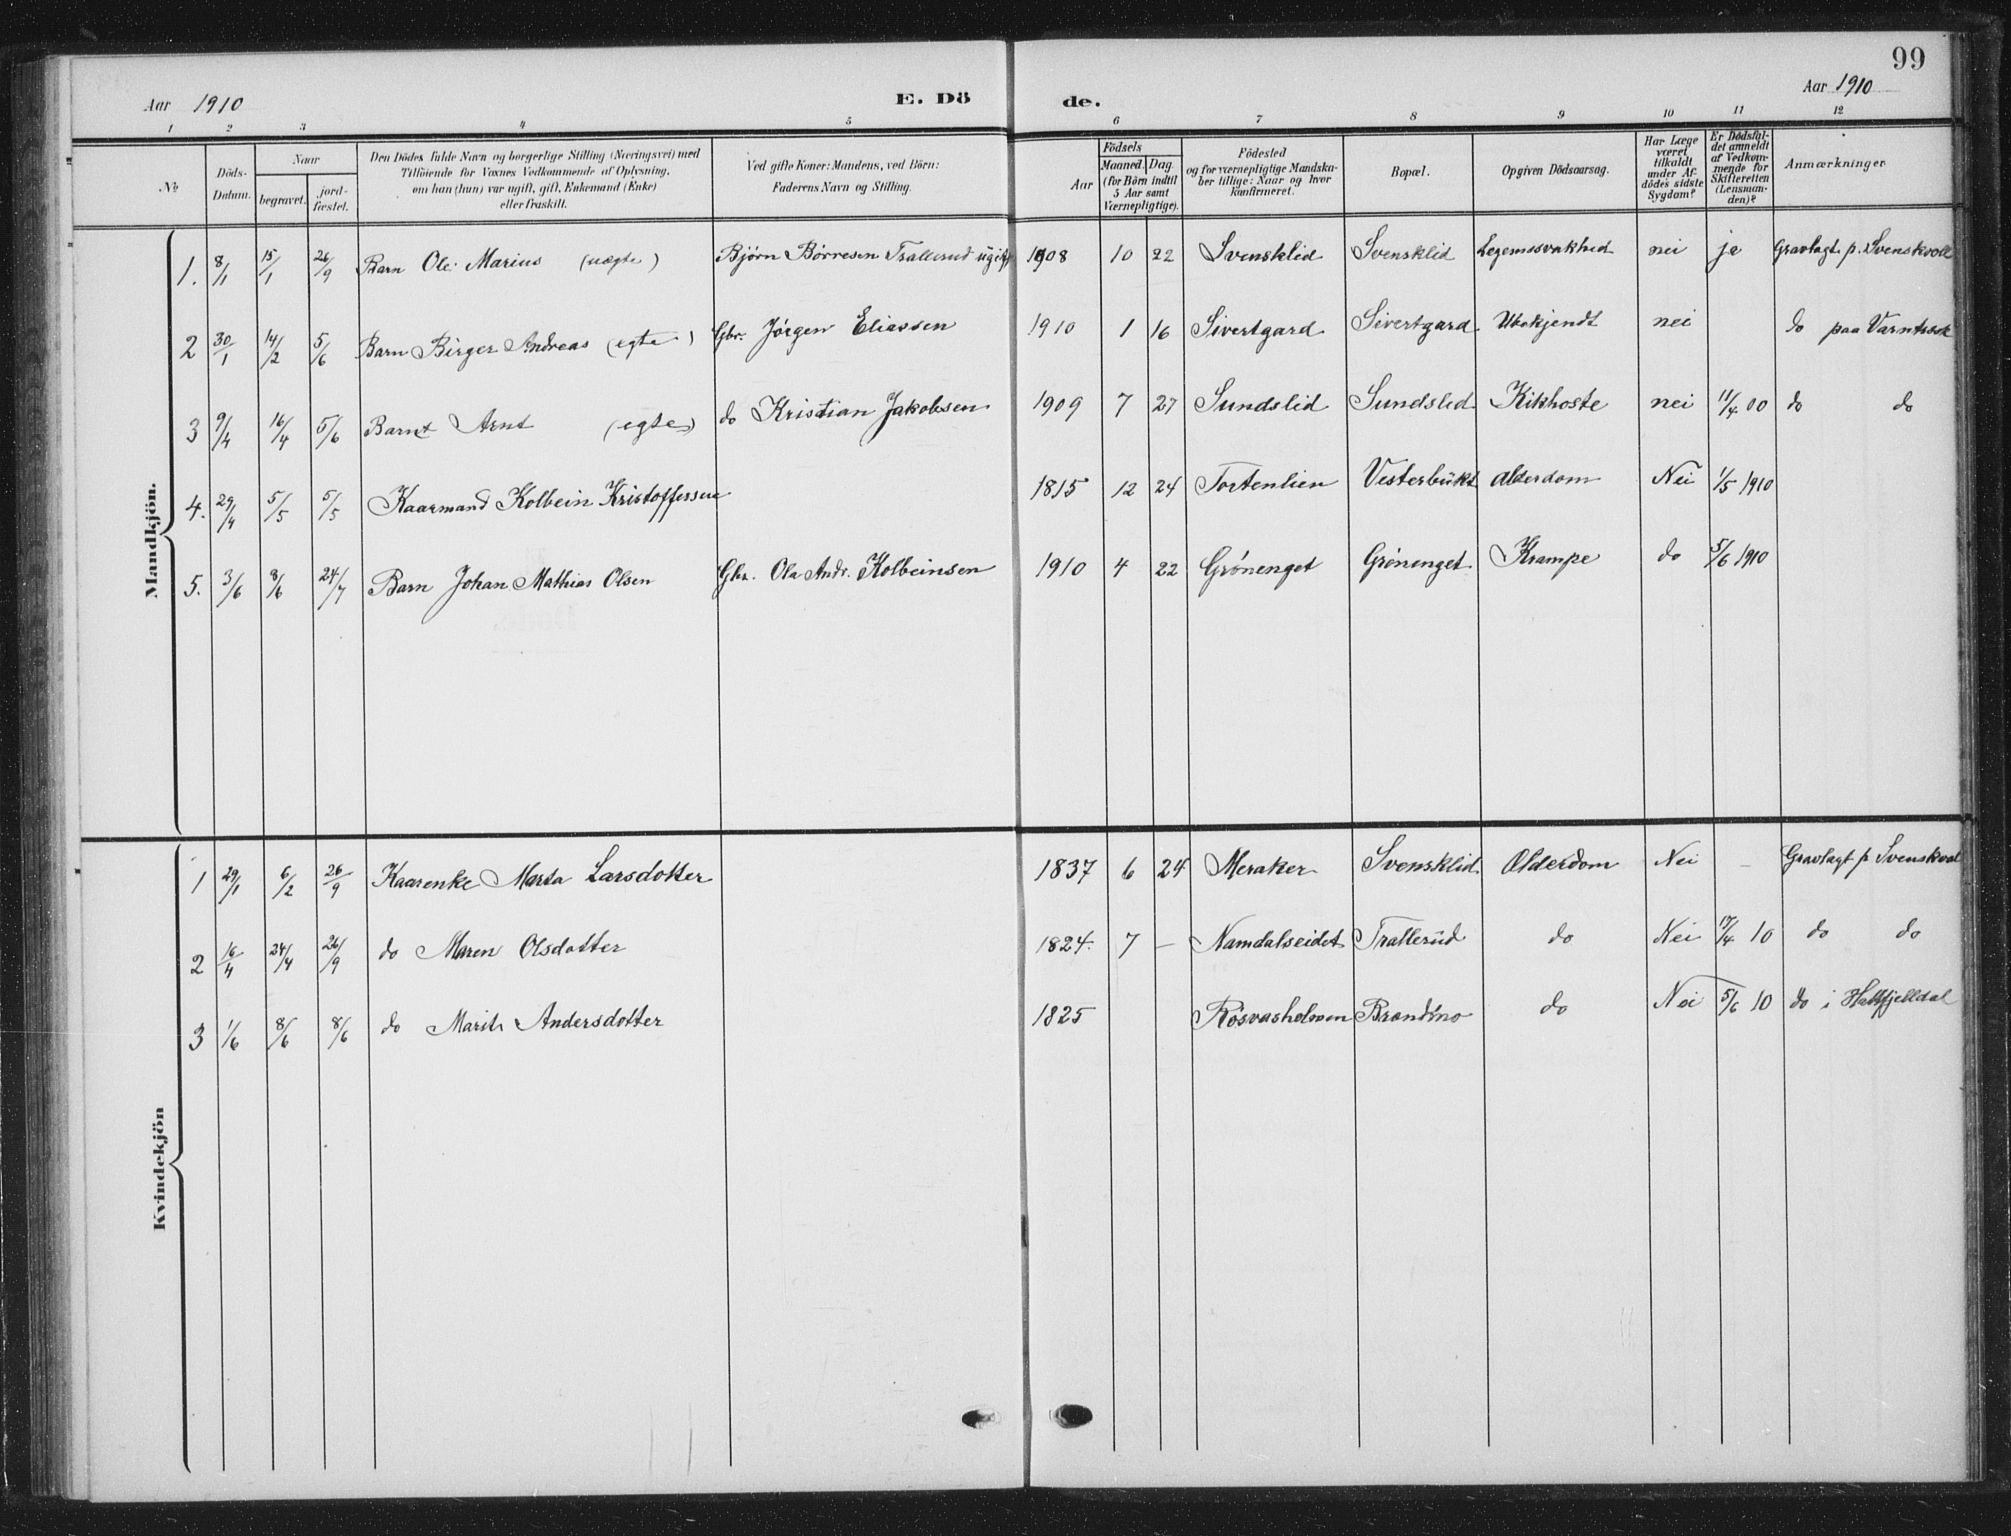 99
Aar 1910 E. Dö de. Aar 1910
1 2 3 4 5 6 7 8 9 10 11 12
№
Döds-
Datum.
Naar
begravet.
jord-
fæstet.
Den Dödes fulde Navn og borgerlige Stilling (Næringsvei) med
Tilföiende for Voxnes Vedkommende af Oplysning,
om han (hun) var ugift, gift, Enkemand (Enke)
eller fraskilt.
Ved gifte Koner: Mandens, ved Börn:
Faderens Navn og Stilling.
Födsels
Aar
Maaned. Dag.
(for Börn indtil
5 Aar samt
Værnepligtige).
Födested
og for værnepligtige Mandska-
ber tillige: Naar og hvor
konfirmeret.
Bopæl.
Opgiven Dödsaarsag.
Har Læge
været
tilkaldt
under Af-
dödes sidste
Sygdom?
Er Dödsfal-
det anmeldt
af Vedkom-
mende for
Skifteretten
(Lensman-
den)?
Anmærkninger
Mandkjön.
1. 8/1 15/1 26/9 Barn Ole Marius (uægte) Bjørn Børresen Trallerud ugift 1908 10 22 Svensklid Svensklid Legemssvakhed nei ja Gravlagt p. Svenskvoll
2 30/1 14/2 5/6 Barn Birger Andreas (egte) Gbr. Jörgen Eliassen 1910 1 16 Sivertgard Sivertgard Ubekjendt nei do paa Varntresk
3 9/4 16/4 5/6 Barnet Arnt (egte) do Kristian Jakobsen 1909 7 27 Sundslid Sundslid Kikhoste nei 11/4 00 do do
4. 29/4 5/5 5/5 Kaarmand Kolbein Kristoffersen 1815 12 24 Tortenlien Vesterbukt Alderdom Nei 1/5 1910
5. 3/6 8/6 24/7 Barn Johan Mathias Olsen Gbr. Ola Andr. Kolbeinsen 1910 4 22 Grönenget Grönenget Krampe do 5/6 1910
Kvindekjön
1 29/1 6/2 26/9 Kaarenke Marta Larsdotter 1837 6 24 Meraker Svensklid Olderdom Nei – Gravlagt p Svenskvol
2 16/4 24/4 26/9 do Maren Olsdotter 1824. 7 – Namdalseidet Trallerud do Nei 17/4 10 do do
3 1/6 8/6 8/6 do Marit Andersdotter 1825 Rösvasholmen Brandmo do Nei 5/6 10 do i Hatfjelldal